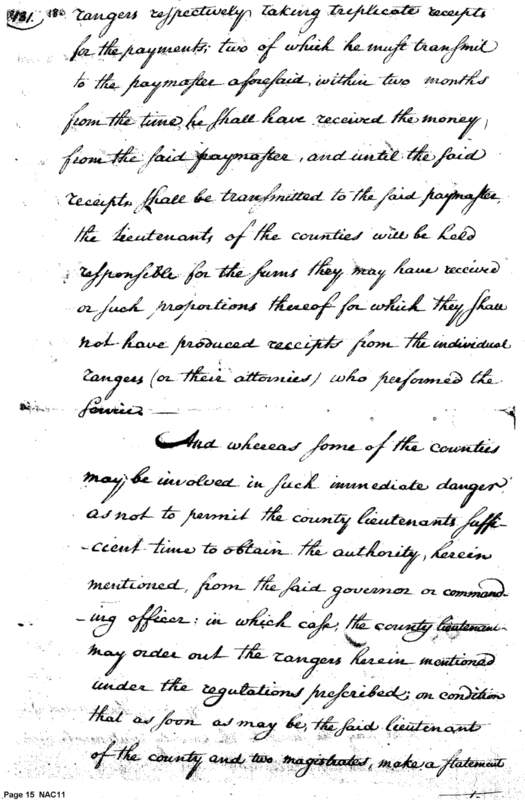 181. 180 rangers respectively taking triplicate receipts
for the payments; two of which he must transmit
to the paymaster aforesaid, within two months
from the time he shall have received the money,
from the said paymaster, and until the said
receipts shall be transmitted to the said paymaster,
the lieutenants of the counties will be held
responsible for the sums they may have received
or such proportions thereof for which they shall
not have produced receipts from the individual
rangers (or their attornies) who performed the
service. —
And whereas some of the counties
may be involved in such immediate danger
as not to permit the county lieutenants suffi-
-cient time to obtain the authority, herein
mentioned, from the said governor or command-
-ing officer: in which case, the county lieutenant
may order out the rangers herein mentioned
under the regulations prescribed; on condition
that as soon as may be, the said lieutenant
of the county and two magistrates, make a statement
Page 15 NAC11